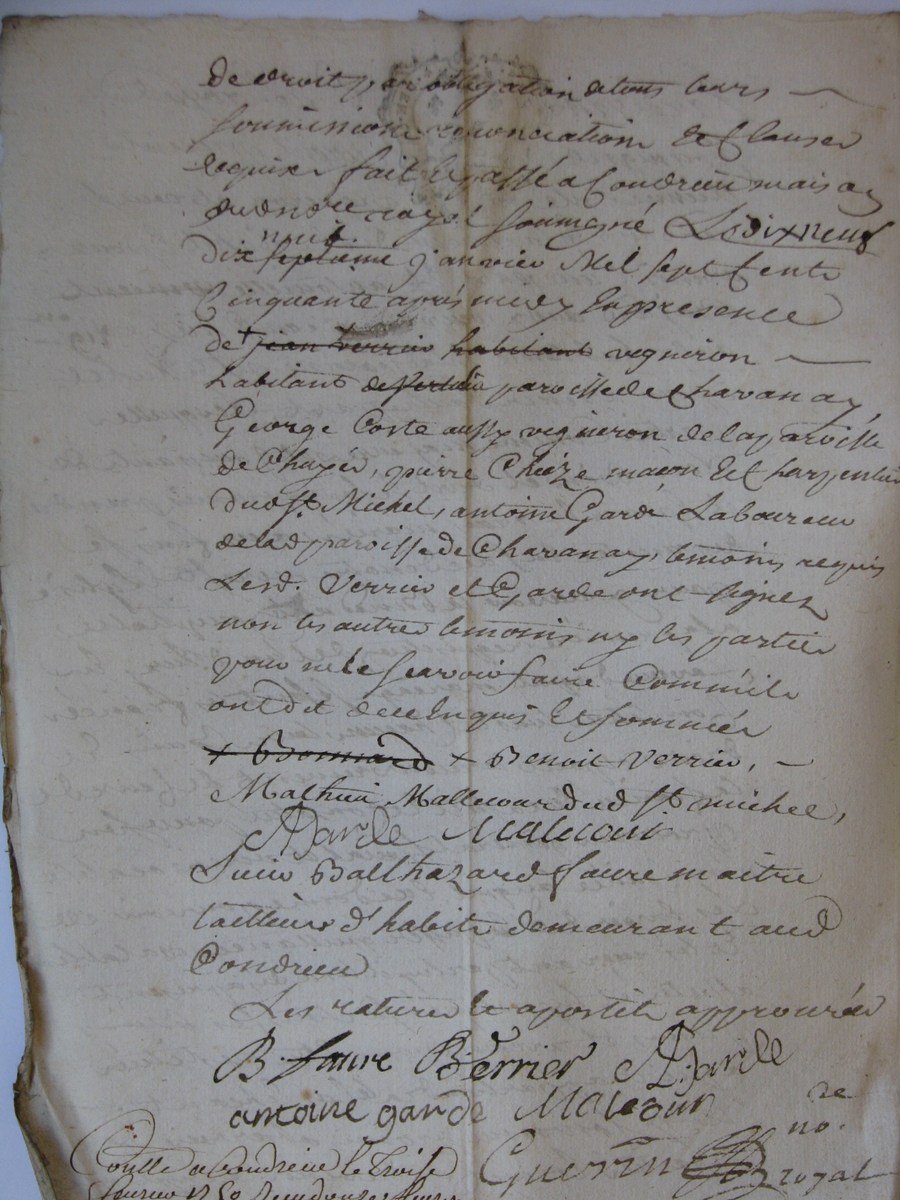 de droit par obligation de tous leurs
soumissions renonciations et clauses
requises fait et passé a Condrieu maison
du notre royal soussigné Le dix neuf
neuf
dix septieme janvier Mil sept cents
Cinquante aprés medy En presence
de + jean verrier habitant vigneron
habitant de parroisse de Chavanay,
George Coste aussy vigneron de la paroisse
de Chuyer, pierre Chieze macon et charpentier
dud. St. Michel, antoine Garde Laboureur
de lad. parroisse de Chavanay, temoins requis
Lesd. Verrier et Garde ont signez
non les autres temoins ny les parties
pour ne le scavoir faire Comm'ils
ont dit de ce Enquis Et sommés
+ Bonnard + Benoit Verrier,
Mathieu Mallecour dud. St. michel,
AGarde Malecour
Sieur Balthazard faure maitre
tailleur d'habits demeurant aud.
Condrieu
Les ratures et apostile approuvées
B. faure B. Verrier AGarde
antoine garde Malcour
Guerrin no. royal
Conlle a Condrieu le Trois